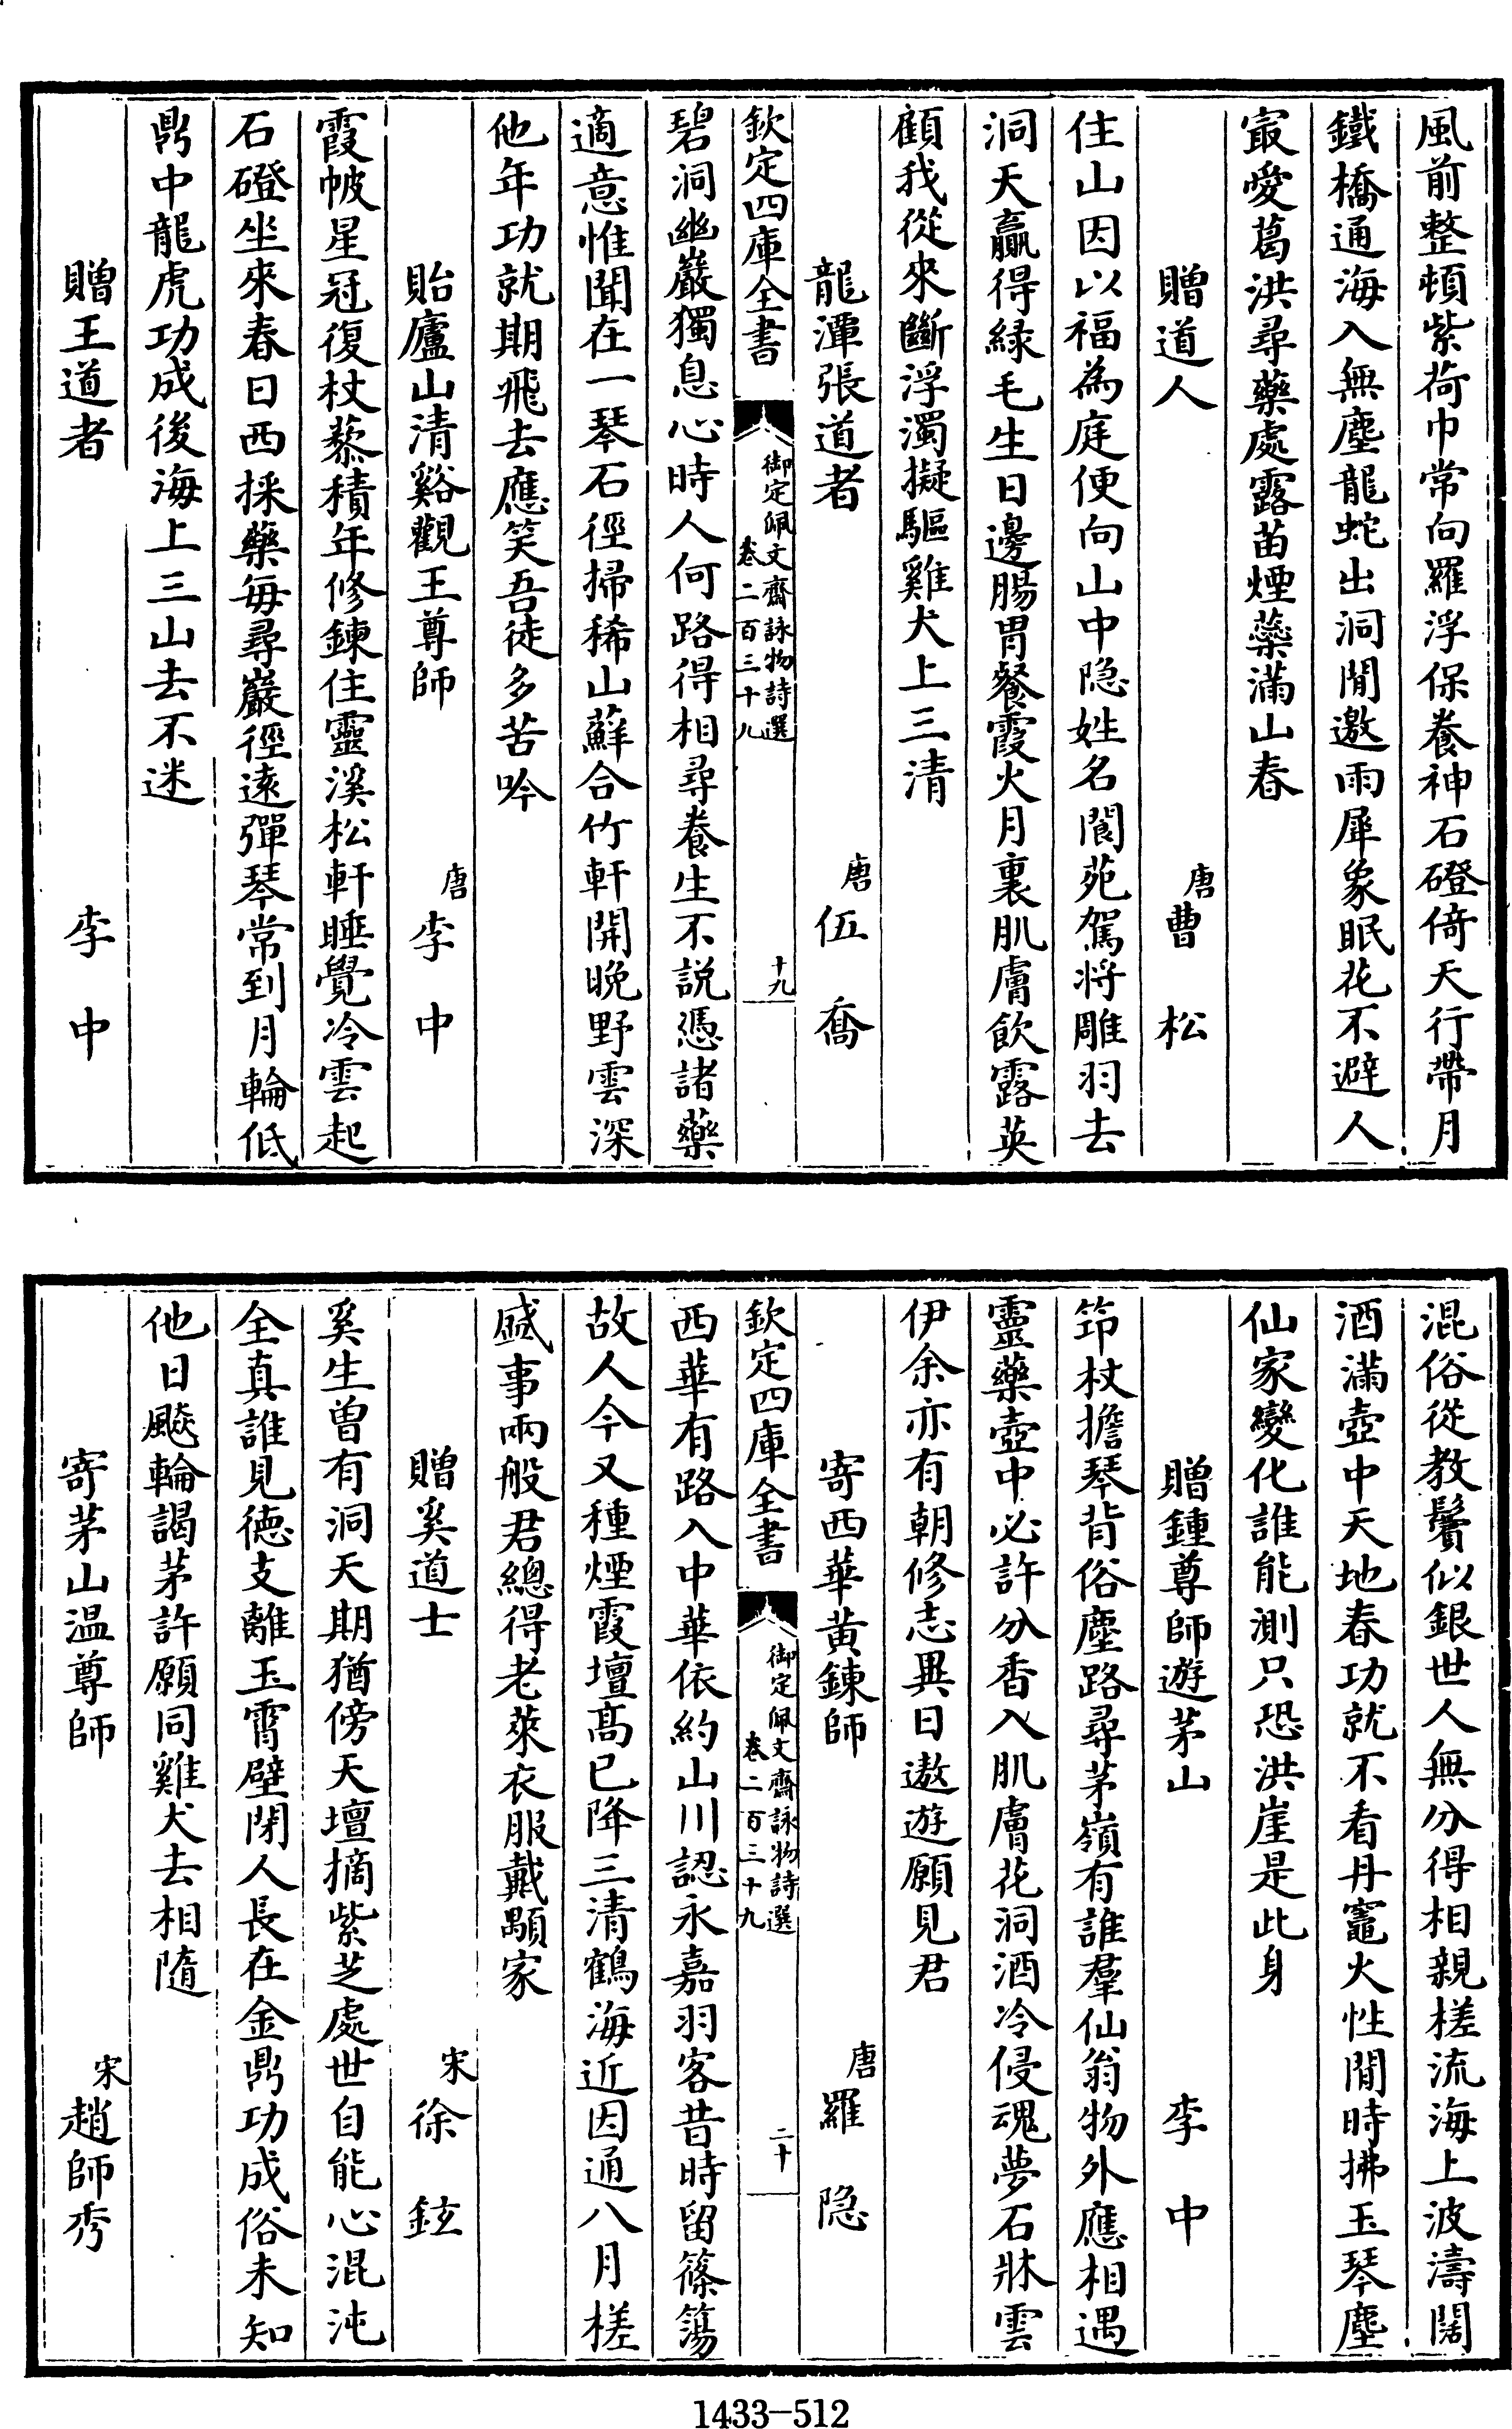 風前整頓紫荷巾常向羅浮保養神石磴倚天行帶月
鐵橋通海入無塵龍蛇出洞閒邀雨犀象眠花不避人
㝡愛葛洪尋藥處露苗煙蘂滿山春
贈道人　唐曹松
住山因以福為庭便向山中隐姓名閬苑駕將雕羽去
洞天贏得緑毛生日邊腸胃餐霞火月裏肌膚飲露英
顧我從來斷浮濁擬驅雞犬上三清
龍潭張道者　唐伍喬
欽定四庫全書　御定佩文齋詠物詩選　卷二百三十九　十九
碧洞幽巖獨息心時人何路得相尋養生不説憑諸藥
適意惟聞在一琴石徑掃稀山蘚合竹軒開晚野雲深
他年功就期飛去應笑吾徒多苦吟
貽廬山清谿觀王尊師　唐李中
霞帔星冠復杖藜積年修鍊住靈溪松軒睡覺冷雲起
石磴坐來春日西採藥每尋巖徑遠彈琴常到月輪低
鼎中龍虎功成後海上三山去不迷
贈王道者　李中
混俗從教鬢似銀世人無分得相親槎流海上波濤闊
酒滿壺中天地春功就不看丹竈火性閒時拂玉琴塵
仙家變化誰能測只恐洪崖是此身
贈鍾尊師遊茅山　李中
筇杖擔琴背俗塵路尋茅嶺有誰羣仙翁物外應相遇
靈藥壺中必許分香入肌膚花洞酒冷侵魂夢石牀雲
伊余亦有朝修志異日遨遊願見君
寄西華黄鍊師　唐羅隐
欽定四庫全書　御定佩文齋詠物詩選　卷二百三十九　二十
西華有路入中華依約山川認永嘉羽客昔時留篠簜
故人今又種煙霞壇髙已降三清鶴海近因通八月槎
盛事兩般君總得老萊衣服戴顒家
贈奚道士　宋徐鉉
奚生曾有洞天期猶傍天壇摘紫芝處世自能心混沌
全真誰見徳支離玉霄壁閉人長在金鼎功成俗未知
他日飇輪謁茅許願同雞犬去相隨
寄茅山温尊師　宋趙師秀
1433-512